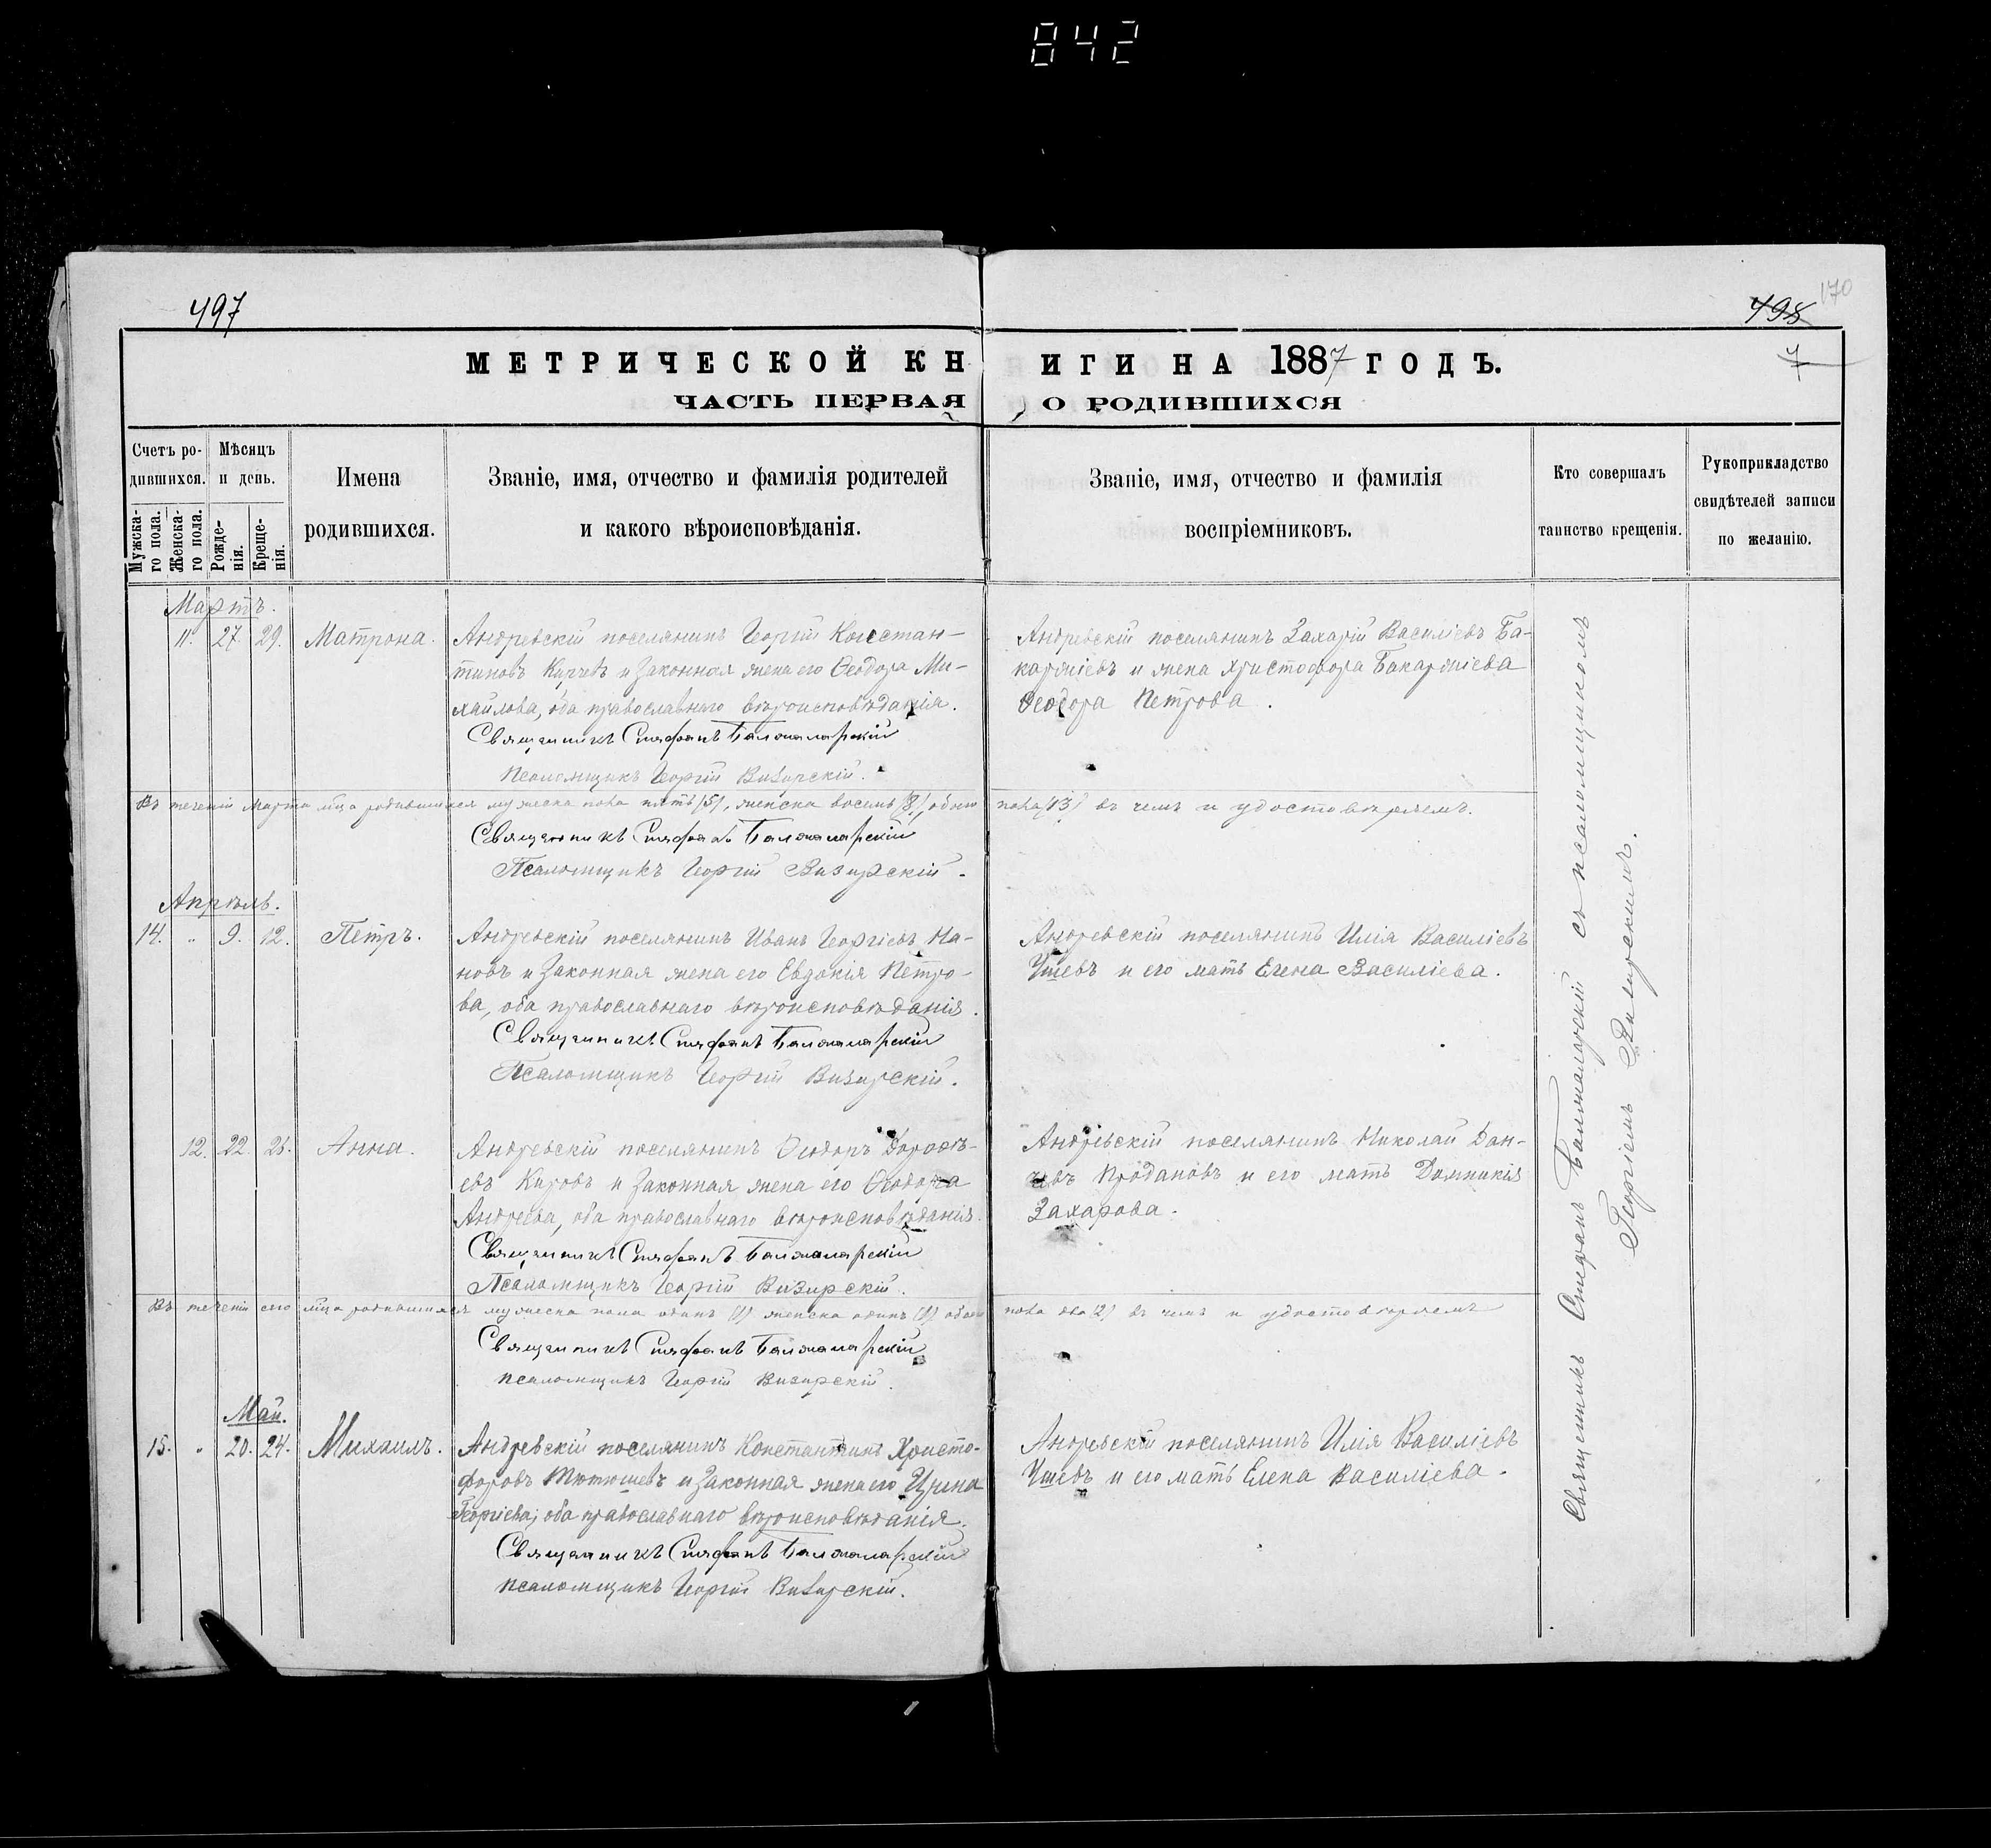 842
497
498
170
7
МЕТРИЧЕСКОЙ КНИГИ НА 1887 ГОДЪ.
ЧАСТЬ ПЕРВАЯ, О РОДИВШИХСЯ
Счетъ родившихся.
Мужскаго пола.
Женскаго пола.
Мѣсяцъ и день.
Рожденія.
Крещенія.
Имена родившихся.
Званіе, имя, отчество и фамилія родителей
и какого вѣроисповѣданія.
Званіе, имя, отчество и фамилія
воспріемниковъ.
Кто совершалъ
таинство крещенія.
Рукоприкладство
свидѣтелей записи
по желанію.
Мартъ.
11. 27. 29. Матрона.
Андревскій поселянинъ Георгій Констан-
тиновъ Кирчевъ и законная жена его Ѳеодора Ми-
хайлова, оба православнаго вѣроисповѣданія.
Священникъ Стефанъ Балжаларскій
Псаломщикъ Георгій Визирскій.
Андревскій поселянинъ Захарій Василіевъ Ба-
каржіевъ и жена Христофора Бакаржіева
Ѳеодора Петрова.
Въ теченіи марта м̃ца родившихся мужеска пола пять (5), женска восемь (8), обоего пола (13) въ чемъ и удостовѣряемъ.
Священникъ Стефанъ Балжаларскій
Псаломщикъ Георгій Визирскій.
Апрѣль.
14. " 9. 12. Петръ.
Андревскій поселянинъ Иванъ Георгіевъ На-
новъ и законная жена его Евдокія Петро-
ва, оба православнаго вѣроисповѣданія.
Священникъ Стефанъ Балжаларскій
Псаломщикъ Георгій Визирскій.
Андревскій поселянинъ Илія Василіевъ
Ушевъ и его мать Елена Василіева.
12. 22. 26. Анна.
Андревскій поселянинъ Ѳеодоръ Дороѳѣ-
евъ Кировъ и законная жена его Ѳеодора
Андреева, оба православнаго вѣроисповѣданія.
Священникъ Стефанъ Балжаларскій
Псаломщикъ Георгій Визирскій.
Андревскій поселянинъ Николай Дан-
чевъ Продановъ и его мать Домникія
Захарова.
Въ теченіи сего м̃ца родившихся мужеска пола одинъ (1) женска одинъ (1) обоего пола два (2) въ чемъ и удостовѣряемъ
Священникъ Стефанъ Балжаларскій
Псаломщикъ Георгій Визирскій.
Май.
15. " 20. 24. Михаилъ.
Андревскій поселянинъ Константинъ Христо-
форовъ Тютюшевъ и законная жена его Ирина
Георгіева, оба православнаго вѣроисповѣданія.
Священникъ Стефанъ Балжаларскій
Псаломщикъ Георгій Визирскій.
Андревскій поселянинъ Илія Василіевъ
Ушевъ и его мать Елена Василіева.
Священникъ Стефанъ Балжаларскій съ псаломщикомъ
Георгіемъ Визирскимъ.